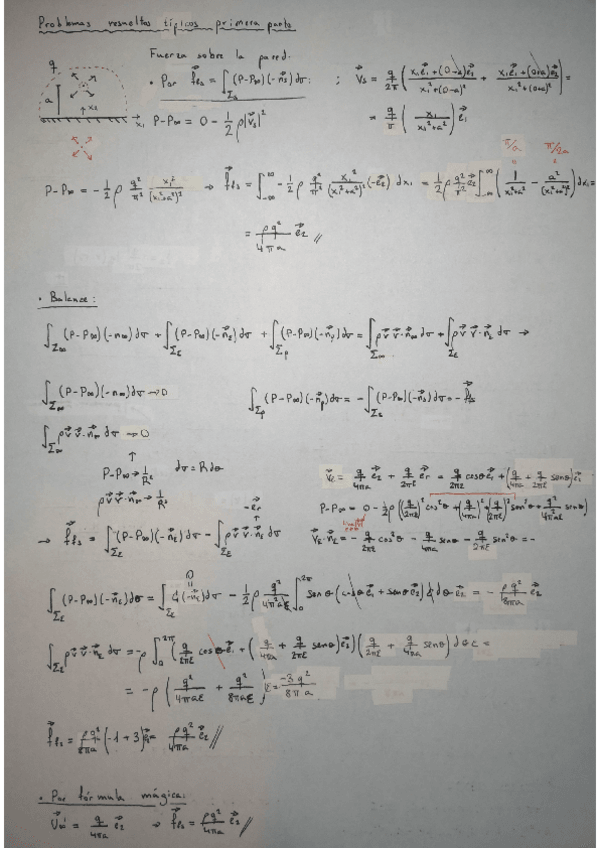 Problemas resueltos típicos primera parte
Fuerza sobre la pared.
q
a
x₂
x₁
• Por f⃗fs = ∫Σs (P-P∞)(-n⃗s)dσ: ; V⃗s = q/2π ( (x₁e⃗₁+(0-a)e⃗₂)/(x₁²+(0-a)²) + (x₁e⃗₁+(0+a)e⃗₂)/(x₁²+(0+a)²) ) =
P-P∞ = 0 - 1/2 ρ|v⃗s|²
= q/π ( x₁/(x₁²+a²) ) e⃗₁
π/a π/2a
P-P∞ = -1/2 ρ q²/π² x₁²/(x₁²+a²)² → f⃗fs = ∫ -1/2 ρ q²/π² x₁²/(x₁²+a²)² (-e⃗₂) dx₁ = 1/2 ρ q²/π² e⃗₂ ∫ ( 1/(x₁²+a²) - a²/(x₁²+a²)² ) dx₁ =
= ρq²/4πa e⃗₂ //
• Balance:
∫Σ∞ (P-P∞)(-n∞)dσ + ∫Σε (P-P∞)(-n⃗ε)dσ + ∫Σp (P-P∞)(-n⃗p)dσ = ∫Σ∞ ρv⃗ v⃗·n⃗∞ dσ + ∫Σε ρv⃗ v⃗·n⃗ε dσ →
∫Σ∞ (P-P∞)(-n∞)dσ → 0 ∫Σp (P-P∞)(-n⃗p)dσ = -∫Σs (P-P∞)(-n⃗s)dσ = -f⃗fs
∫Σ∞ ρv⃗ v⃗·n⃗∞ dσ → 0
↑
P-P∞ → 1/R² dσ = R dθ
ρv⃗ v⃗·n⃗∞ → 1/R²
V⃗ε = q/4πa e⃗₂ + q/2πε e⃗r = q/2πε cosθ e⃗₁ + ( q/4πa + q/2πε senθ ) e⃗₂
P-P∞ = 0 - 1/2 ρ ( (q/2πε)² cos²θ + (q/4πa)² + (q/2πε)² sen²θ + q²/4π²aε senθ )
-e⃗r
→ f⃗fs = ∫Σε (P-P∞)(-n⃗ε)dσ - ∫Σε ρv⃗ v⃗·n⃗ε dσ V⃗ε·n⃗ε = - q/2πε cos²θ - q/4πa senθ - q/2πε sen²θ = -
∫Σε (P-P∞)(-n⃗ε)dθ = ∫Σε C(-n⃗ε)dσ - 1/2 ρ q²/4π²aε ∫₀²π senθ (cosθ e⃗₁ + senθ e⃗₂) ε dθ = - ρq²/8πa e⃗₂
0
∫Σε ρv⃗ v⃗·n⃗ε dσ = -ρ ∫₀²π ( q/2πε cosθ e⃗₁ + ( q/4πa + q/2πε senθ ) e⃗₂ ) ( q/2πε + q/4πa senθ ) dθ ε =
= -ρ ( q²/4πaε + q²/8πaε ) ε = -3q²/8πa
f⃗fs = ρq²/8πa (-1+3) e⃗₂ = ρq²/4πa e⃗₂ //
• Por fórmula mágica:
V⃗∞' = q/4πa e⃗₂ → f⃗fs = ρq²/4πa e⃗₂ //